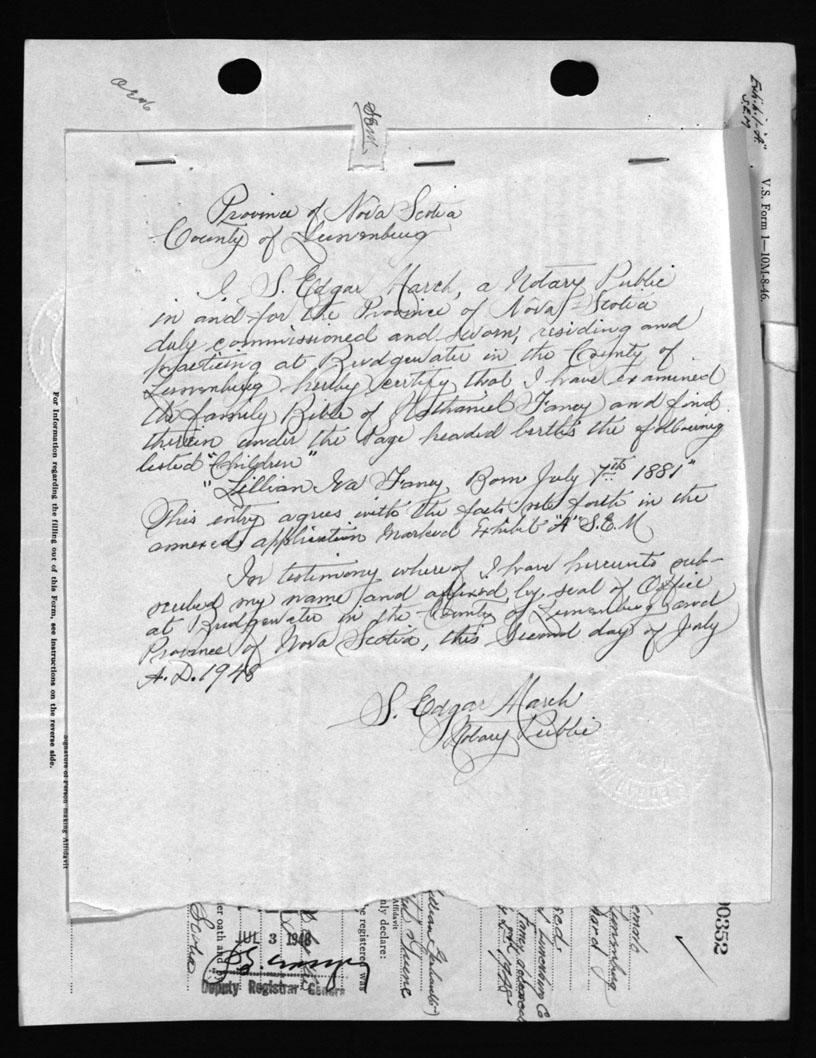 Exhibit "A"
S.E.M
V.S. Form 1—10M-8-46.
S.E.M.
Province of Nova Scotia
County of Lunenburg
I, S. Edgar March, a Notary Public
in and for the Province of Nova-Scotia
duly commissioned and sworn, residing and
practicing at Bridgewater in the County of
Lunenburg herby certify that I have examined
the family Bible of Nathaniel Fancy and find
therein under the Page headed births the following
listed "Children"
"Lillian Iva Fancy Born July 7th 1881"
This entry agrees with the facts set forth in the
annexed application Marked Exhibit "A" S.E.M
In testimony whereof I have hereunto sub-
scribed my name and affixed by seal of Office
at Bridgewater in the County of Lunenburg and
Province of Nova Scotia, this Second day of July
A.D. 1948
S. Edgar March
Notary Public
For Information regarding the filling out of this Form, see Instructions on the reverse side.
Signature of Person making Affidavit
00352
Lunenburg
Lunenburg Co
Affidavit
nly declare:
e registered was
er oath and
JUL 3 1948
Deputy Registrar General